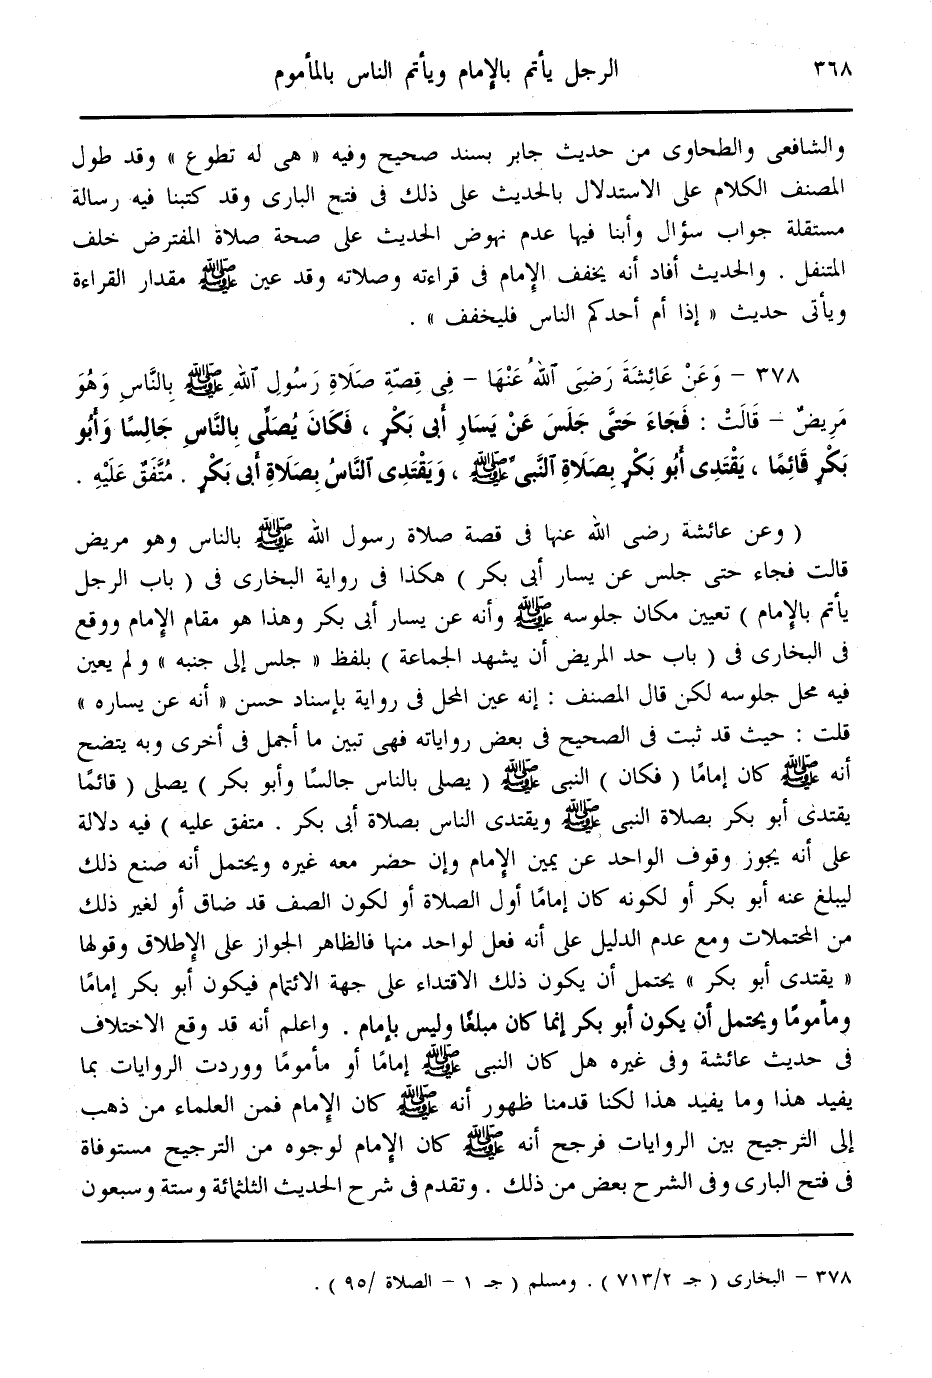 ٣٦٨
الرجل يأتم بالإمام ويأتم الناس بالمأموم
والشافعى والطحاوى من حديث جابر بسند صحيح وفيه « هى له تطوع » وقد طول
المصنف الكلام على الاستدلال بالحديث على ذلك فى فتح البارى وقد كتبنا فيه رسالة
مستقلة جواب سؤال وأبنا فيها عدم نهوض الحديث على صحة صلاة المفترض خلف
المتنفل . والحديث أفاد أنه يخفف الإمام فى قراءته وصلاته وقد عين ﷺ مقدار القراءة
ويأتى حديث « إذا أم أحدكم الناس فليخفف » .
٣٧٨ – وَعَنْ عَائِشَةَ رَضِىَ ٱللهُ عَنْهَا – فِى قِصَّةِ صَلَاةِ رَسُولِ ٱللهِ ﷺ بِالنَّاسِ وَهُوَ
مَرِيضٌ – قَالَتْ : فَجَاءَ حَتَّى جَلَسَ عَنْ يَسَارِ أَبِى بَكْرٍ ، فَكَانَ يُصَلِّى بِالنَّاسِ جَالِسًا وَأَبُو
بَكْرٍ قَائِمًا ، يَقْتَدِى أَبُو بَكْرٍ بِصَلَاةِ النَّبِىِّ ﷺ ، وَيَقْتَدِى ٱلنَّاسُ بِصَلَاةِ أَبِى بَكْرٍ . مُتَّفَقٌ عَلَيْهِ .
( وعن عائشة رضى الله عنها فى قصة صلاة رسول الله ﷺ بالناس وهو مريض
قالت فجاء حتى جلس عن يسار أبى بكر ) هكذا فى رواية البخارى فى ( باب الرجل
يأتم بالإمام ) تعيين مكان جلوسه ﷺ وأنه عن يسار أبى بكر وهذا هو مقام الإمام ووقع
فى البخارى فى ( باب حد المريض أن يشهد الجماعة ) بلفظ « جلس إلى جنبه » ولم يعين
فيه محل جلوسه لكن قال المصنف : إنه عين المحل فى رواية بإسناد حسن « أنه عن يساره »
قلت : حيث قد ثبت فى الصحيح فى بعض رواياته فهى تبين ما أجمل فى أخرى وبه يتضح
أنه ﷺ كان إمامًا ( فكان ) النبى ﷺ ( يصلى بالناس جالسًا وأبو بكر ) يصلى ( قائمًا
يقتدى أبو بكر بصلاة النبى ﷺ ويقتدى الناس بصلاة أبى بكر . متفق عليه ) فيه دلالة
على أنه يجوز وقوف الواحد عن يمين الإمام وإن حضر معه غيره ويحتمل أنه صنع ذلك
ليبلغ عنه أبو بكر أو لكونه كان إمامًا أول الصلاة أو لكون الصف قد ضاق أو لغير ذلك
من المحتملات ومع عدم الدليل على أنه فعل لواحد منها فالظاهر الجواز على الإطلاق وقولها
« يقتدى أبو بكر » يحتمل أن يكون ذلك الاقتداء على جهة الائتمام فيكون أبو بكر إمامًا
ومأمومًا ويحتمل أن يكون أبو بكر إنما كان مبلغًا وليس بإمام . واعلم أنه قد وقع الاختلاف
فى حديث عائشة وفى غيره هل كان النبى ﷺ إمامًا أو مأمومًا ووردت الروايات بما
يفيد هذا وما يفيد هذا لكنا قدمنا ظهور أنه ﷺ كان الإمام فمن العلماء من ذهب
إلى الترجيح بين الروايات فرجح أنه ﷺ كان الإمام لوجوه من الترجيح مستوفاة
فى فتح البارى وفى الشرح بعض من ذلك . وتقدم فى شرح الحديث الثلثمائة وستة وسبعون
٣٧٨ – البخارى ( جـ ٧١٣/٢ ) . ومسلم ( جـ ١ – الصلاة /٩٥ ) .